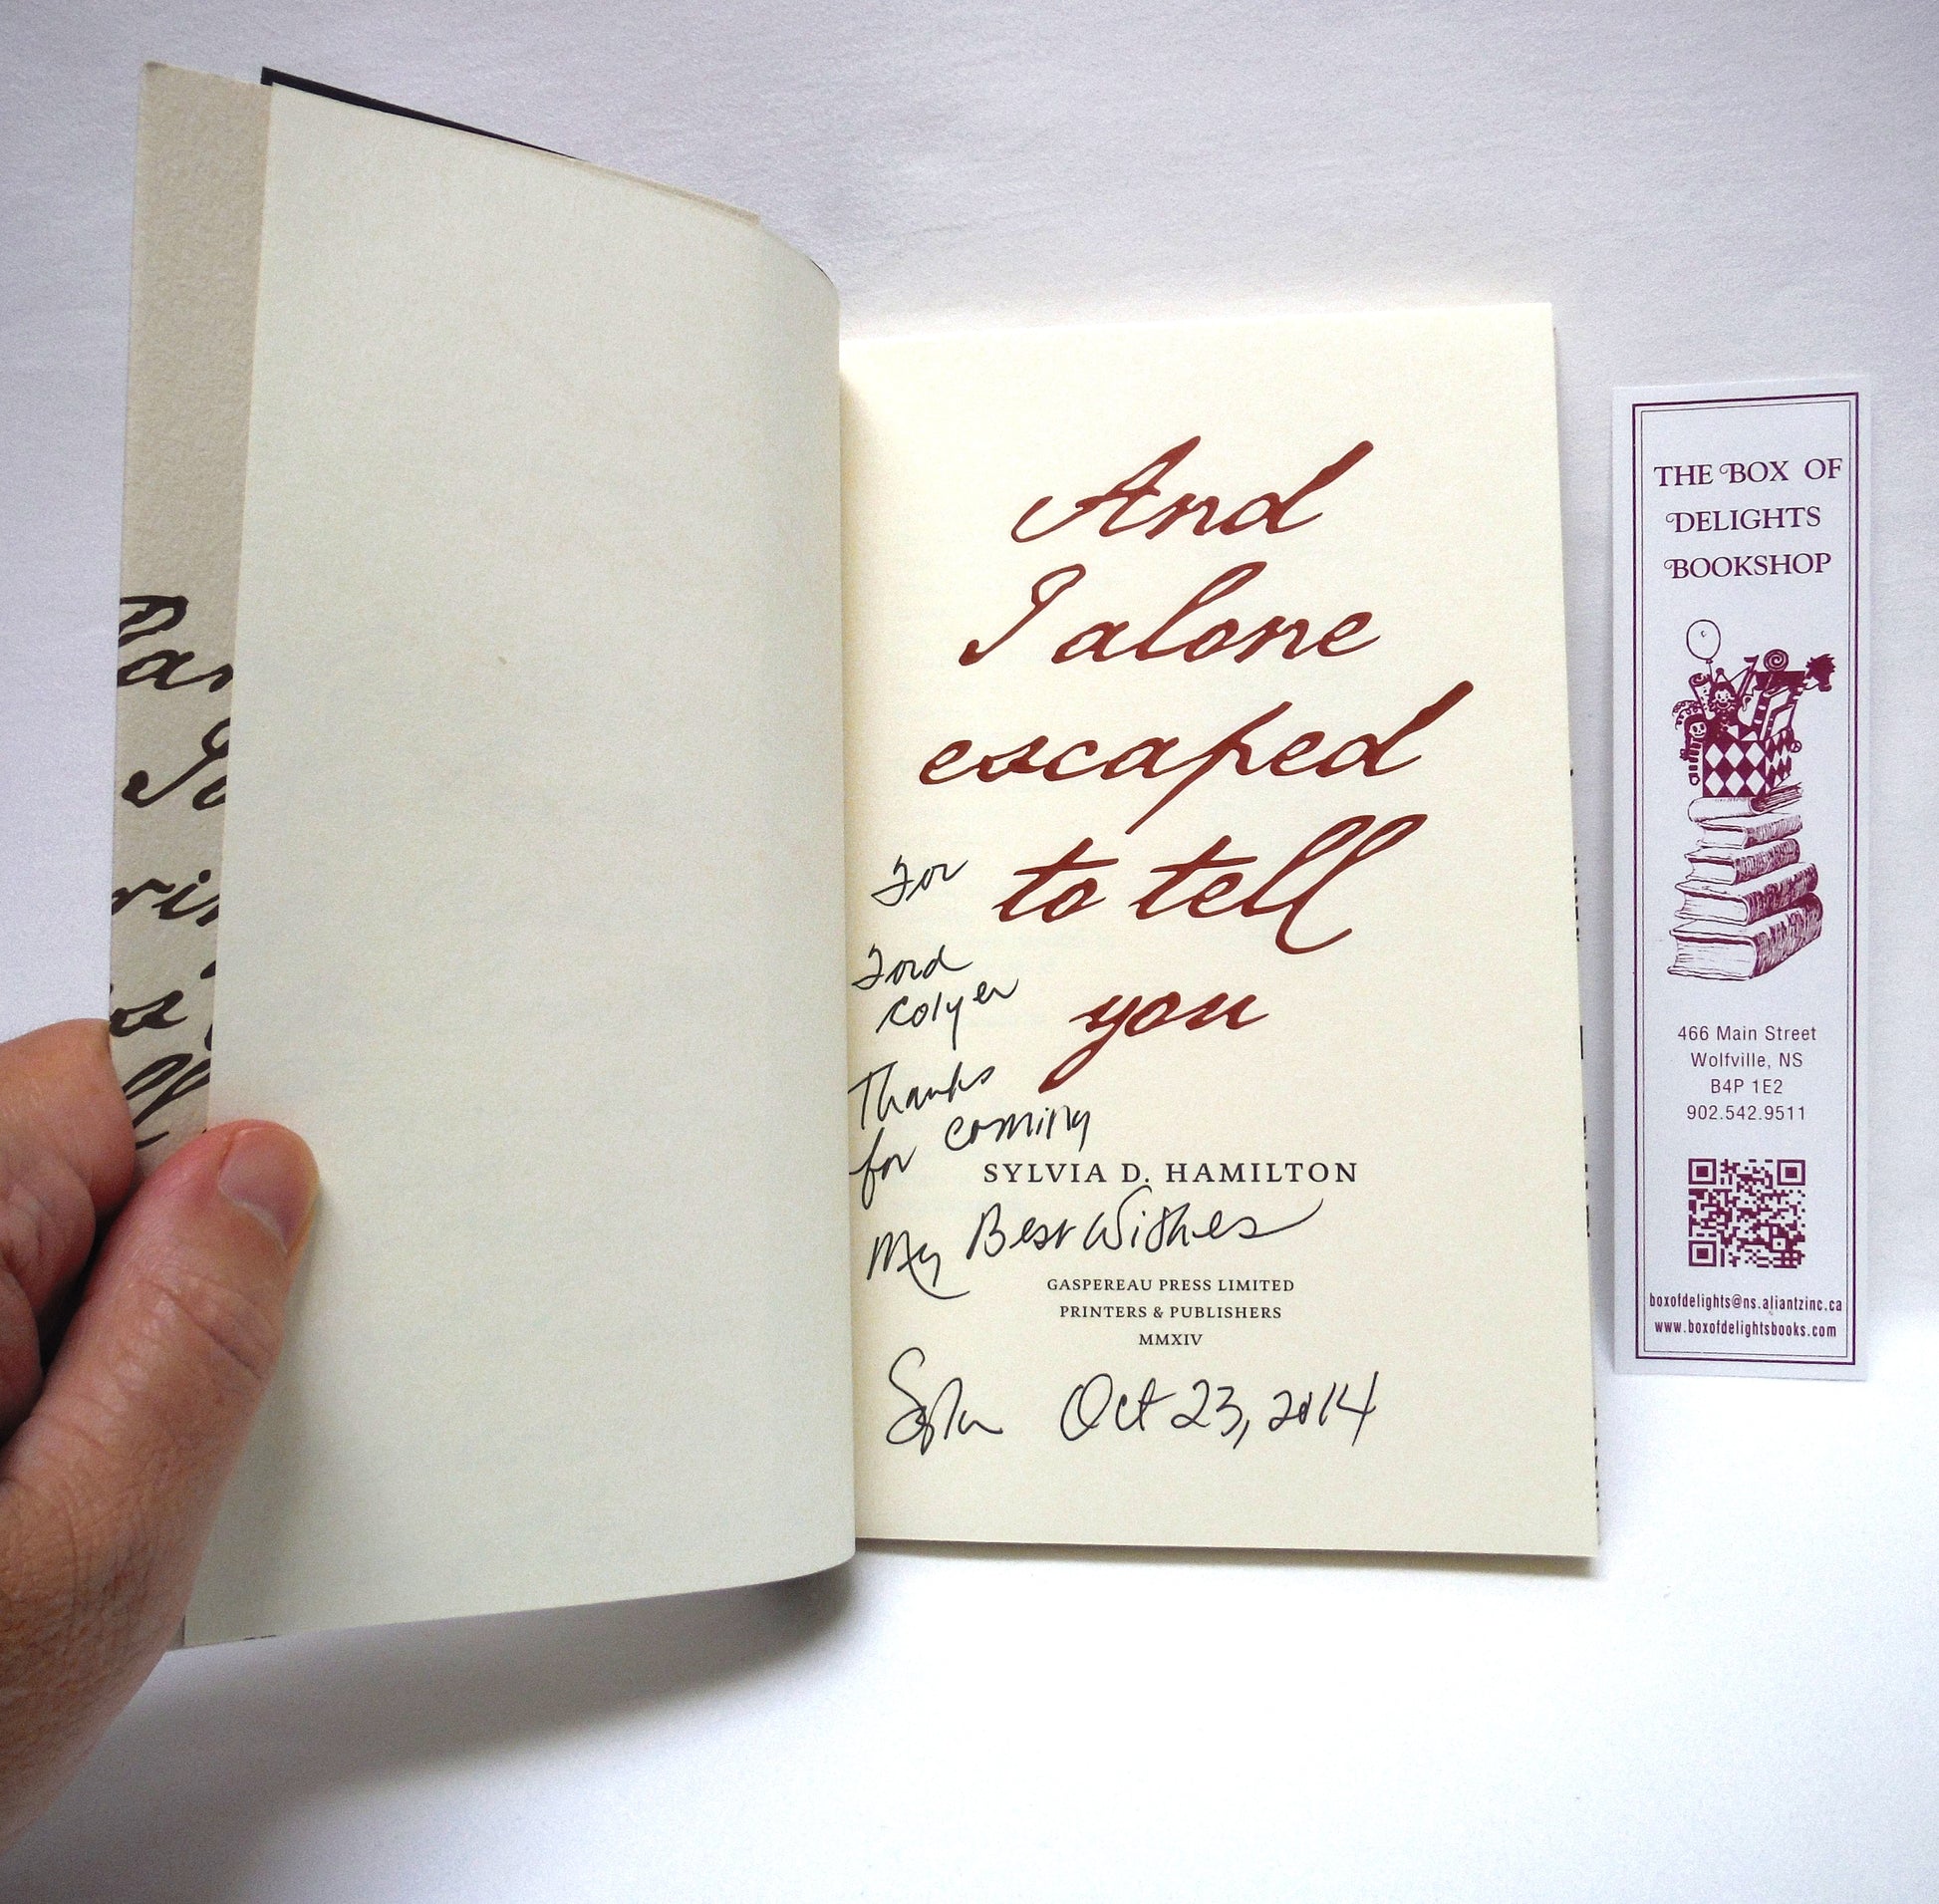 And
I alone
escaped
to tell
you
For
Ford
Colyer
Thanks
for coming
SYLVIA D. HAMILTON
My Best Wishes
GASPEREAU PRESS LIMITED
PRINTERS & PUBLISHERS
MMXIV
Oct 23, 2014
THE BOX OF
DELIGHTS
BOOKSHOP
466 Main Street
Wolfville, NS
B4P 1E2
902.542.9511
boxofdelights@ns.aliantzinc.ca
www.boxofdelightsbooks.com